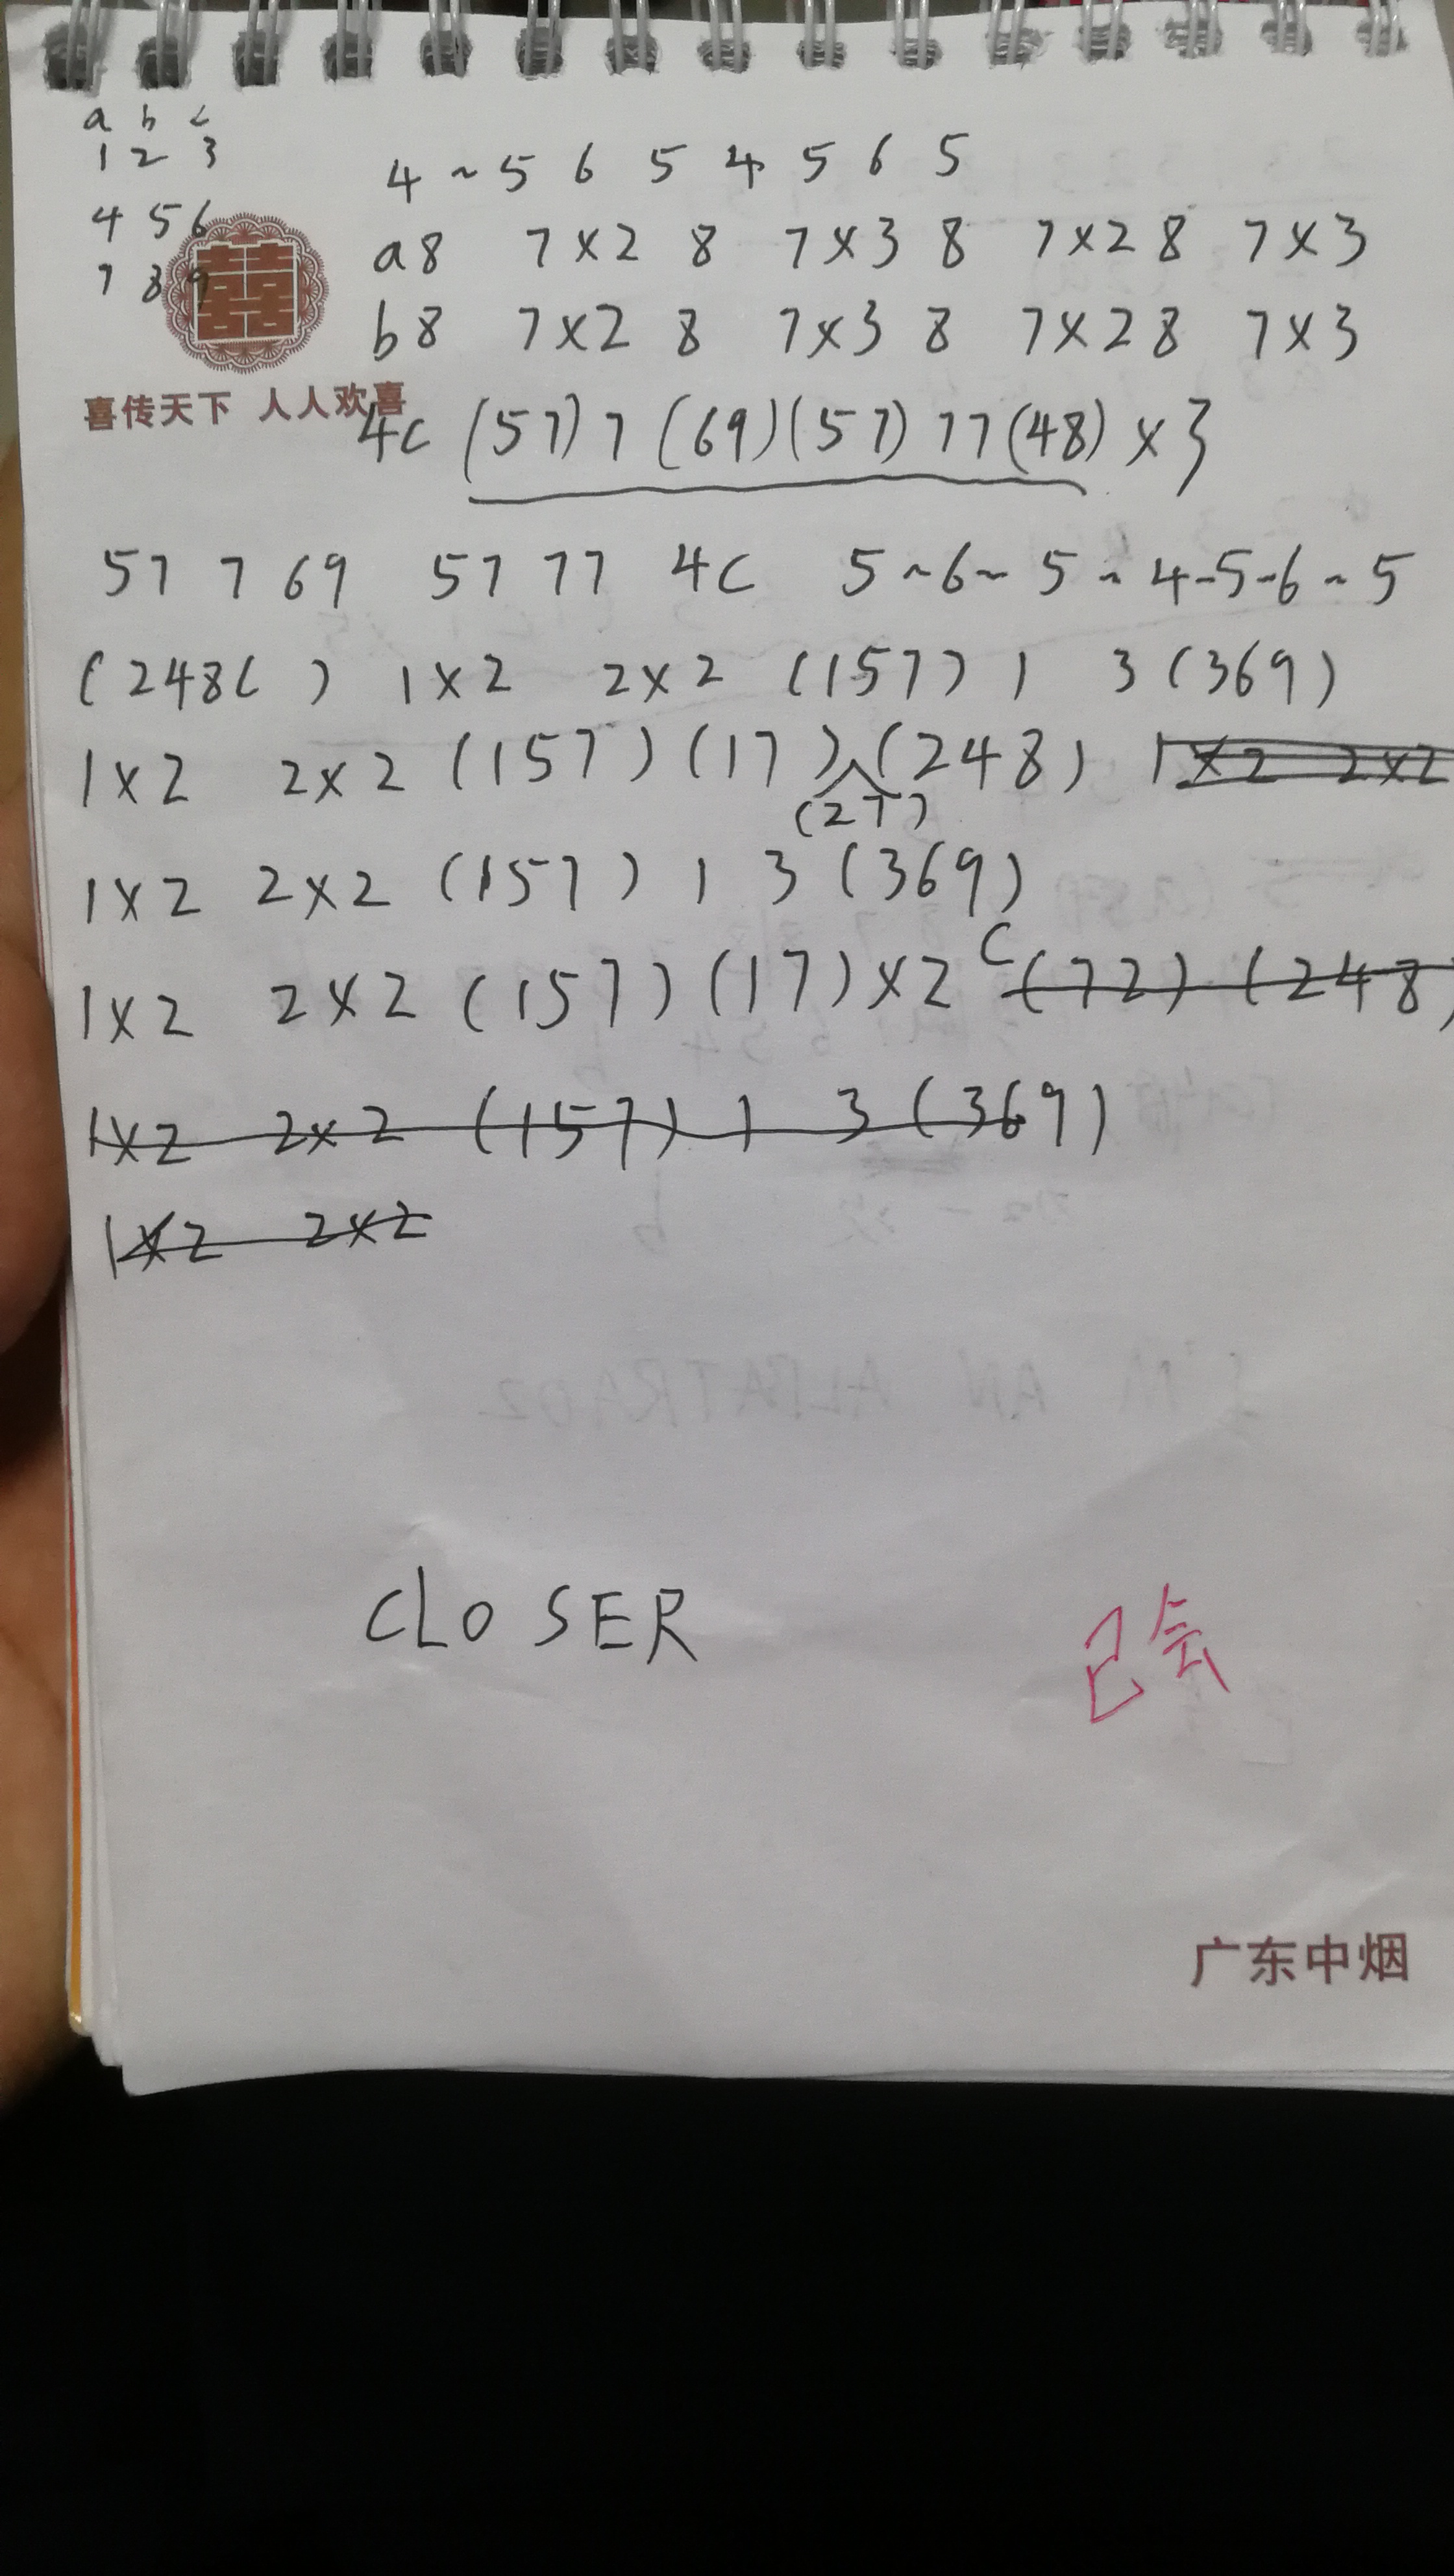 a b c
1 2 3
4 5 6
7 8 9
喜传天下 人人欢喜
4 ~ 5 6 5 4 5 6 5
a8 7×2 8 7×3 8 7×2 8 7×3
b8 7×2 8 7×3 8 7×2 8 7×3
4c (57) 7 (69) (57) 77 (48) ×3
57 7 69 57 77 4c 5~6~5~4-5-6~5
(248C ) 1×2 2×2 (157) 1 3 (369)
1×2 2×2 (157) (17) (248) 1×2 2×2
(27)
1×2 2×2 (157) 1 3 (369)
1×2 2×2 (157) (17)×2 C (72) (248)
1×2 2×2 (157) 1 3 (369)
1×2 2×2
CLOSER
已会
广东中烟